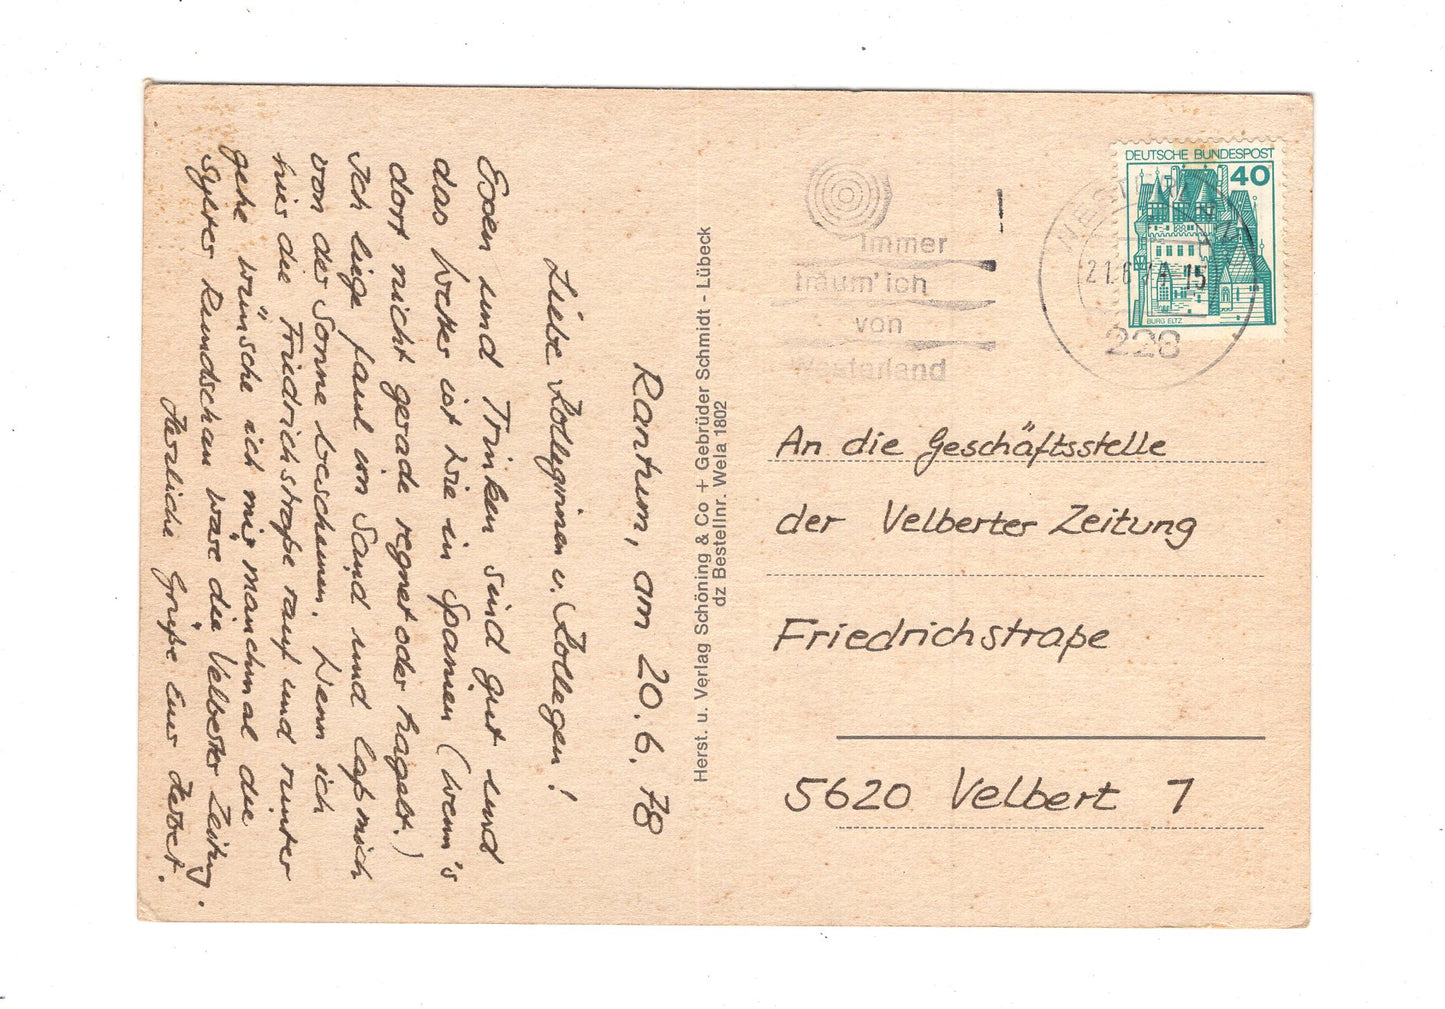 Rantum, am 20.6.78
Liebe Kolleginnen u. Kollegen!
Essen und Trinken sind gut und
das Wetter ist wie in Spanien (wenn's
dort nicht gerade regnet oder hagelt.)
Ich liege faul im Sand und laß mich
von der Sonne bescheinen. Wenn ich
hier die Friedrichstraße rauf und runter
gehe wünsche ich mir manchmal die
Sylter Rundschau wäre die Velberter Zeitung.
Herzliche Grüße Euer
Herst. u. Verlag Schöning & Co + Gebrüder Schmidt - Lübeck
dz Bestellnr. Wela 1802
Immer
träum' ich
von
Westerland
DEUTSCHE BUNDESPOST
40
BURG ELTZ
21.6. 15
228
An die Geschäftsstelle
der Velberter Zeitung
Friedrichstraße
5620 Velbert 1